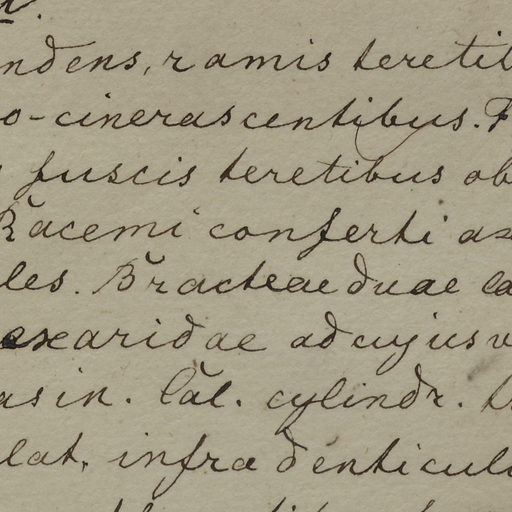 ndens, ramis teretib
o-cinerascentibus. F
fuscis teretibus ob
Racemi conferti ax
les. Bracteae duae la
exaridae ad cujus v
as in. Cal. cylindr. 
lat. infra denticul